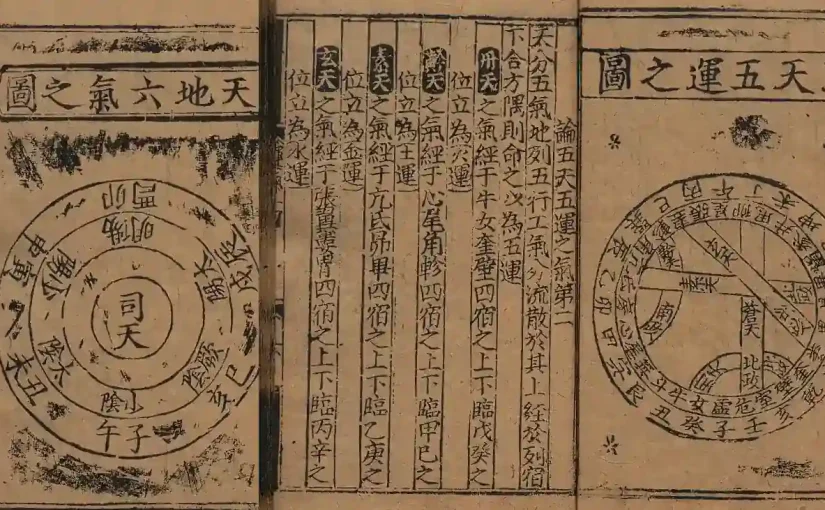 天五運之圖
丁午丙巳
乙卯
艮
丑癸子壬
斗牛女虛危室
玄天
素天
蒼天
論五天五運之氣第二
天分五氣地列五行五氣分流散於其上經於列宿
下合方隅則命之以為五運
丹天之氣經于牛女奎壁四宿之上下臨戊癸之
位立為火運
黅天之氣經于心尾角軫四宿之上下臨甲己之
位立為土運
素天之氣經于亢氐昴畢四宿之上下臨乙庚之
位立為金運
玄天之氣經于張翼婁胃四宿之上下臨丙辛之
位立為水運
天地六氣之圖
司天
少陰
子午
太陰
丑未
少陽
寅申
陽明
卯酉
太陽
辰戌
厥陰
巳亥